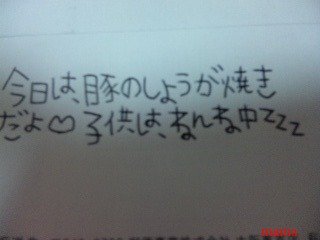 今日は、豚のしょうが焼き
だよ♡子供は、ねんね中zzz